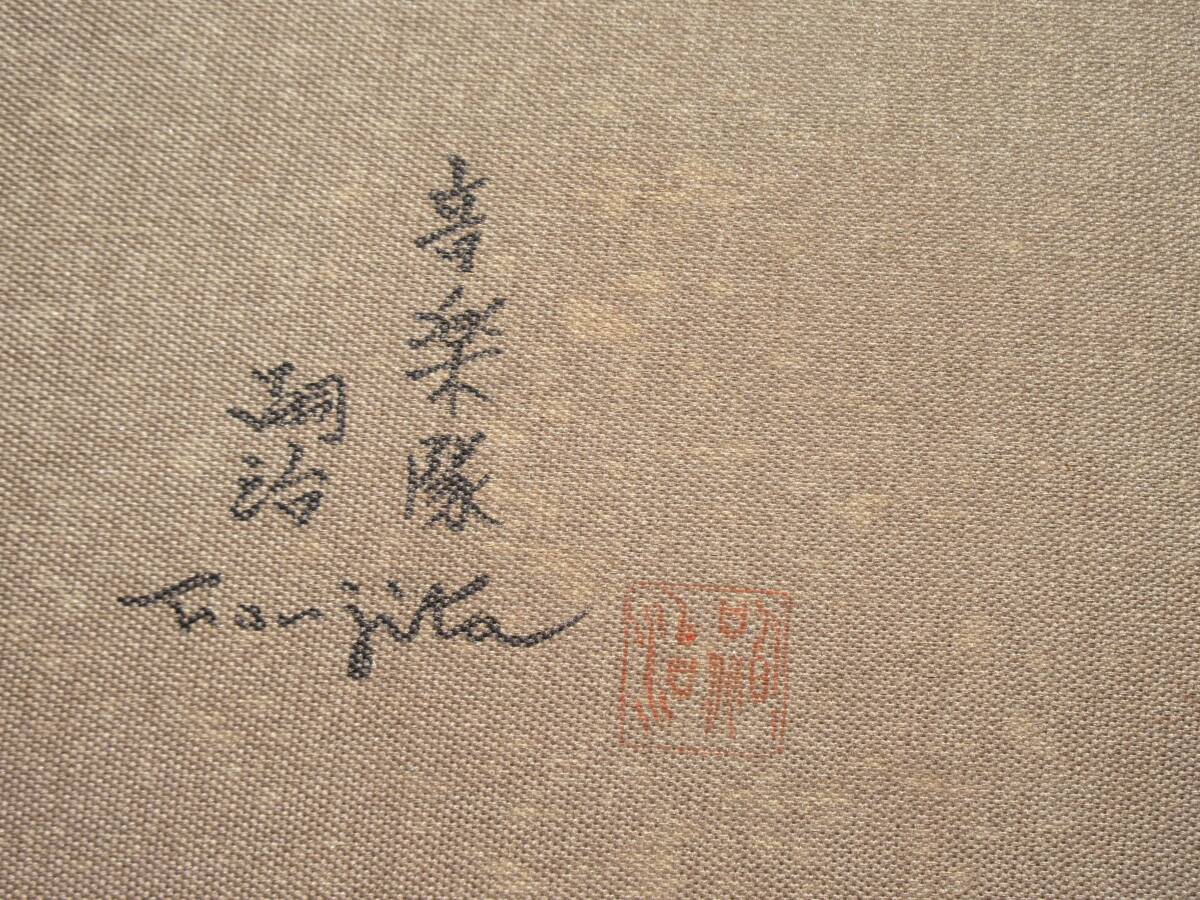 音楽隊
嗣治
Foujita